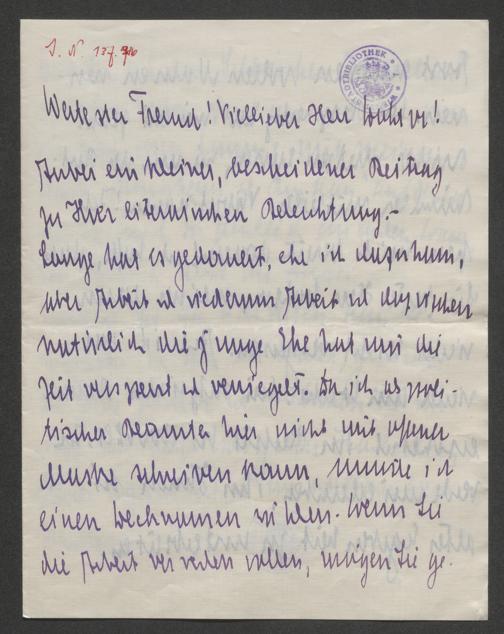 I. N. 137.
STADTBIBLIOTHEK
Wertester Freund! Vielieber Herr
Anbei ein kleiner, bescheidener Beitrag
zu Ihrer literarischen Beleuchtung.-
Lange hat es gedauert, ehe ich dazu kam,
aber Arbeit u wiederum Arbeit u dazwischen
natürlich die junge Ehe hat mir die
Zeit versperrt u versiegelt. Da ich als poli-
tischer Beamter hier nicht mit offener
Maske schreiben kann, wurde ich
einen Decknamen wählen. Wenn Sie
die Arbeit verwenden wollen, mögen Sie ge-